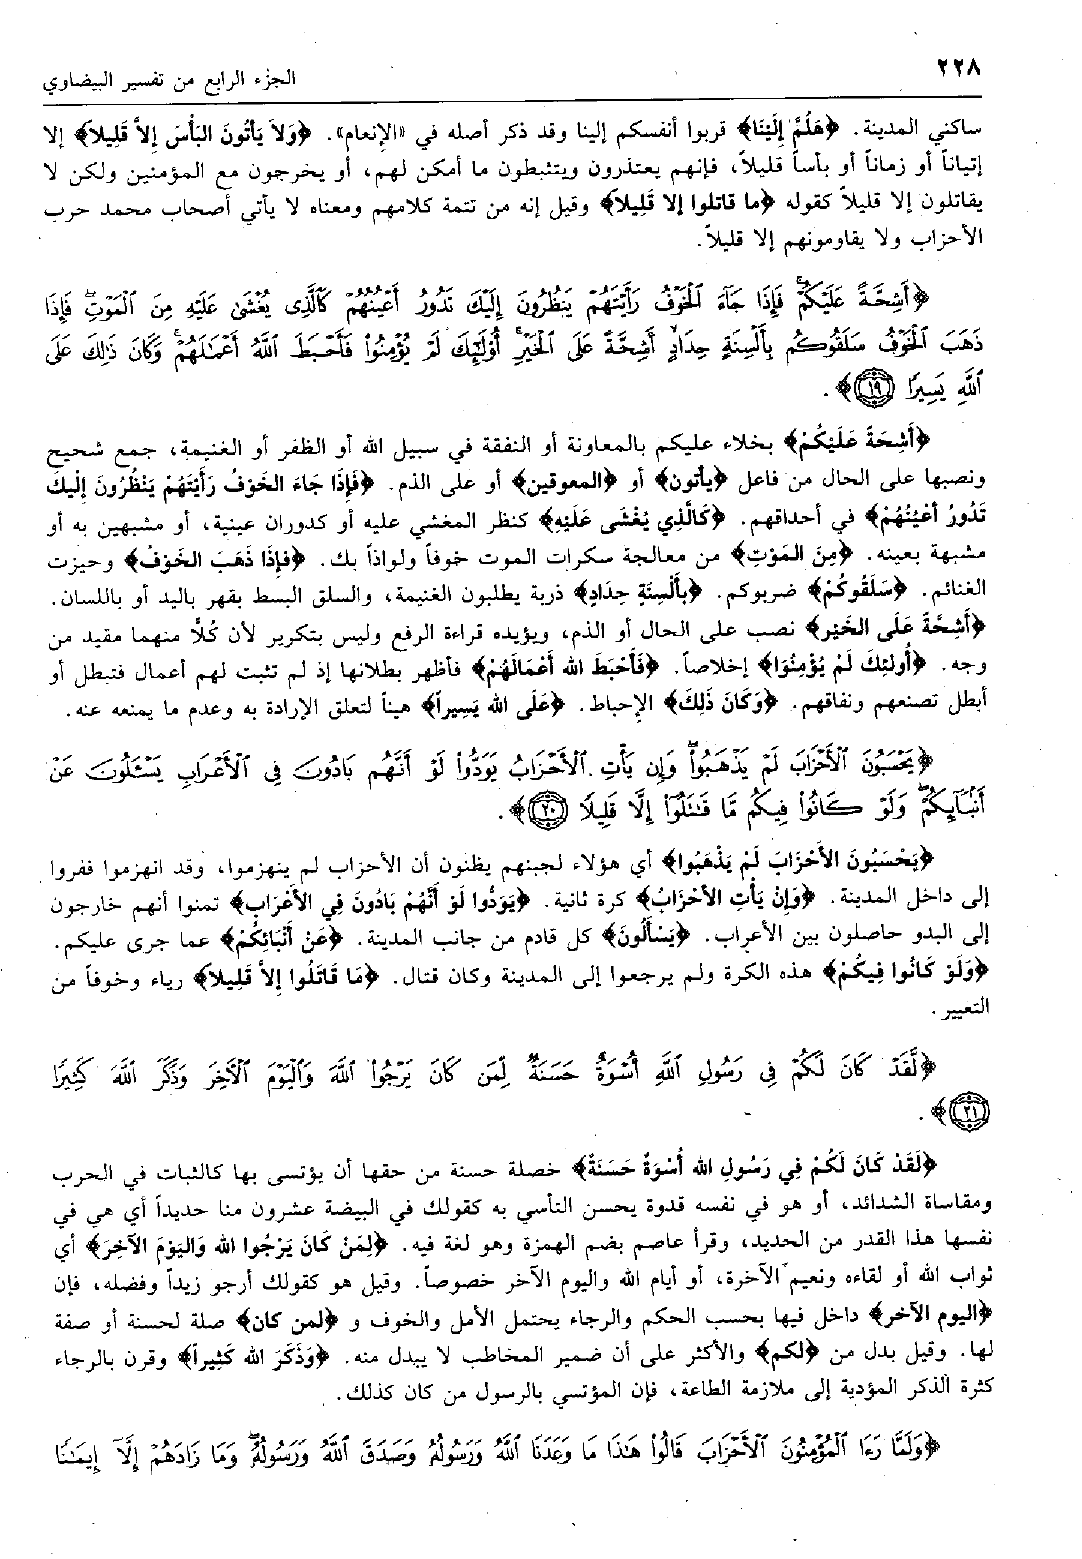 ٢٢٨
الجزء الرابع من تفسير البيضاوي
ساكني المدينة. ﴿هَلُمَّ إِلَيْنَا﴾ قربوا أنفسكم إلينا وقد ذكر أصله في «الإنعام». ﴿وَلاَ يَأْتُونَ البَأْسَ إِلاَّ قَلِيلاً﴾ إلا
إتياناً أو زماناً أو بأساً قليلاً، فإنهم يعتذرون ويتثبطون ما أمكن لهم، أو يخرجون مع المؤمنين ولكن لا
يقاتلون إلا قليلاً كقوله ﴿ما قاتلوا إلا قَلِيلاً﴾ وقيل إنه من تتمة كلامهم ومعناه لا يأتي أصحاب محمد حرب
الأحزاب ولا يقاومونهم إلا قليلاً.
﴿أَشِحَّةً عَلَيْكُمْ فَإِذَا جَآءَ ٱلْخَوْفُ رَأَيْتَهُمْ يَنظُرُونَ إِلَيْكَ تَدُورُ أَعْيُنُهُمْ كَٱلَّذِى يُغْشَىٰ عَلَيْهِ مِنَ ٱلْمَوْتِۖ فَإِذَا
ذَهَبَ ٱلْخَوْفُ سَلَقُوكُم بِأَلْسِنَةٍ حِدَادٍ أَشِحَّةً عَلَى ٱلْخَيْرِۚ أُوْلَٰٓئِكَ لَمْ يُؤْمِنُواْ فَأَحْبَطَ ٱللَّهُ أَعْمَٰلَهُمْۚ وَكَانَ ذَٰلِكَ عَلَى
ٱللَّهِ يَسِيرًا ١٩﴾.
﴿أَشِحَّةً عَلَيْكُمْ﴾ بخلاء عليكم بالمعاونة أو النفقة في سبيل الله أو الظفر أو الغنيمة، جمع شحيح
ونصبها على الحال من فاعل ﴿يأتون﴾ أو ﴿المعوقين﴾ أو على الذم. ﴿فَإِذَا جَاءَ الخَوْفُ رَأَيْتَهُمْ يَنْظُرُونَ إِلَيْكَ
تَدُورُ أَعْيُنُهُمْ﴾ في أحداقهم. ﴿كَالَّذِي يُغْشَى عَلَيْهِ﴾ كنظر المغشي عليه أو كدوران عينية، أو مشبهين به أو
مشبهة بعينه. ﴿مِنَ المَوْتِ﴾ من معالجة سكرات الموت خوفاً ولواذاً بك. ﴿فإِذَا ذَهَبَ الخَوْفُ﴾ وحيزت
الغنائم. ﴿سَلَقُوكُمْ﴾ ضربوكم. ﴿بِأَلْسِنَةٍ حِدَادٍ﴾ ذربة يطلبون الغنيمة، والسلق البسط بقهر باليد أو باللسان.
﴿أَشِحَّةً عَلَى الخَيْرِ﴾ نصب على الحال أو الذم، ويؤيده قراءة الرفع وليس بتكرير لأن كُلاًّ منهما مقيد من
وجه. ﴿أُولَئِكَ لَمْ يُؤْمِنُوا﴾ إخلاصاً. ﴿فَأَحْبَطَ الله أَعْمَالَهُمْ﴾ فأظهر بطلانها إذ لم تثبت لهم أعمال فتبطل أو
أبطل تصنعهم ونفاقهم. ﴿وَكَانَ ذَلِكَ﴾ الإحباط. ﴿عَلَى الله يَسِيراً﴾ هيناً لتعلق الإرادة به وعدم ما يمنعه عنه.
﴿يَحْسَبُونَ ٱلْأَحْزَابَ لَمْ يَذْهَبُواْۖ وَإِن يَأْتِ ٱلْأَحْزَابُ يَوَدُّواْ لَوْ أَنَّهُم بَادُونَ فِى ٱلْأَعْرَابِ يَسْـَٔلُونَ عَنْ
أَنۢبَآئِكُمْۖ وَلَوْ كَانُواْ فِيكُم مَّا قَٰتَلُوٓاْ إِلَّا قَلِيلًا ٢٠﴾.
﴿يَحْسَبُونَ الأَحْزَابَ لَمْ يَذْهَبُوا﴾ أي هؤلاء لجبنهم يظنون أن الأحزاب لم ينهزموا، وقد انهزموا ففروا
إلى داخل المدينة. ﴿وَإِنْ يَأْتِ الأَحْزَابُ﴾ كرة ثانية. ﴿يَوَدُّوا لَوْ أَنَّهُمْ بَادُونَ فِي الأَعْرَابِ﴾ تمنوا أنهم خارجون
إلى البدو حاصلون بين الأعراب. ﴿يَسْأَلُونَ﴾ كل قادم من جانب المدينة. ﴿عَنْ أَنْبَائِكُمْ﴾ عما جرى عليكم.
﴿وَلَوْ كَانُوا فِيكُمْ﴾ هذه الكرة ولم يرجعوا إلى المدينة وكان قتال. ﴿مَا قَاتَلُوا إِلاَّ قَلِيلاً﴾ رياء وخوفاً من
التعيير.
﴿لَّقَدْ كَانَ لَكُمْ فِى رَسُولِ ٱللَّهِ أُسْوَةٌ حَسَنَةٌ لِّمَن كَانَ يَرْجُواْ ٱللَّهَ وَٱلْيَوْمَ ٱلْأَخِرَ وَذَكَرَ ٱللَّهَ كَثِيرًا
٢١﴾.
﴿لَقَدْ كَانَ لَكُمْ فِي رَسُولِ الله أُسْوَةٌ حَسَنَةٌ﴾ خصلة حسنة من حقها أن يؤتسى بها كالثبات في الحرب
ومقاساة الشدائد، أو هو في نفسه قدوة يحسن التأسي به كقولك في البيضة عشرون منا حديداً أي هي في
نفسها هذا القدر من الحديد، وقرأ عاصم بضم الهمزة وهو لغة فيه. ﴿لِمَنْ كَانَ يَرْجُوا الله وَاليَوْمَ الآخِرَ﴾ أي
ثواب الله أو لقاءه ونعيم الآخرة، أو أيام الله واليوم الآخر خصوصاً. وقيل هو كقولك أرجو زيداً وفضله، فإن
﴿اليوم الآخر﴾ داخل فيها بحسب الحكم والرجاء يحتمل الأمل والخوف و ﴿لمن كان﴾ صلة لحسنة أو صفة
لها. وقيل بدل من ﴿لكم﴾ والأكثر على أن ضمير المخاطب لا يبدل منه. ﴿وَذَكَرَ الله كَثِيراً﴾ وقرن بالرجاء
كثرة الذكر المؤدية إلى ملازمة الطاعة، فإن المؤتسي بالرسول من كان كذلك.
﴿وَلَمَّا رَءَا ٱلْمُؤْمِنُونَ ٱلْأَحْزَابَ قَالُواْ هَٰذَا مَا وَعَدَنَا ٱللَّهُ وَرَسُولُهُۥ وَصَدَقَ ٱللَّهُ وَرَسُولُهُۥۚ وَمَا زَادَهُمْ إِلَّآ إِيمَٰنًا